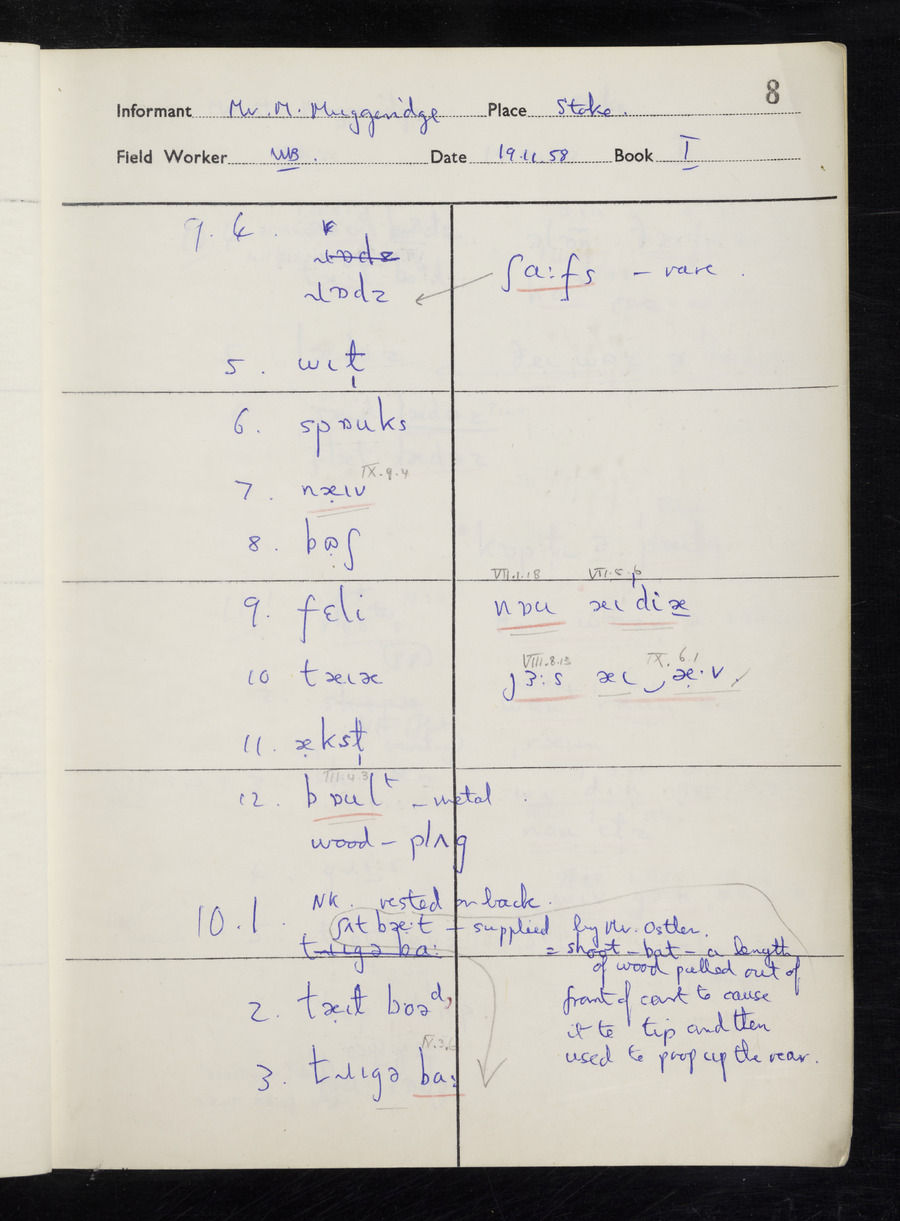 8
Informant Mr. M. Muggeridge Place Stoke.
Field Worker WB. Date 19.11.58 Book I
9. 4. ɹɒdz
ɹɒdz ʃa:fs – rare.
5. wɪt̩
6. spɒuks
IX.9.4
7. næɪv
8. bɒ̣ʃ
VII.1.18 VII.5.
9. fɛli nɒu æɪdiæ
VIII.8.13 IX.6.1
10 tæɪæ jɜ:s æɪ‿æ:v
11. ækst̩
III.4.3
12. bɒult – metal.
wood – plʌg
10.1. NK. rested on back.
ʃɪt bæ:t – supplied by Mr. Ostler.
tɹɪgə ba: = shoot-bat – a length
of wood pulled out of
2. tæɪt boəd, front of cart to cause
it to tip and then
3. tɹɪgə ba: used to prop up the rear.